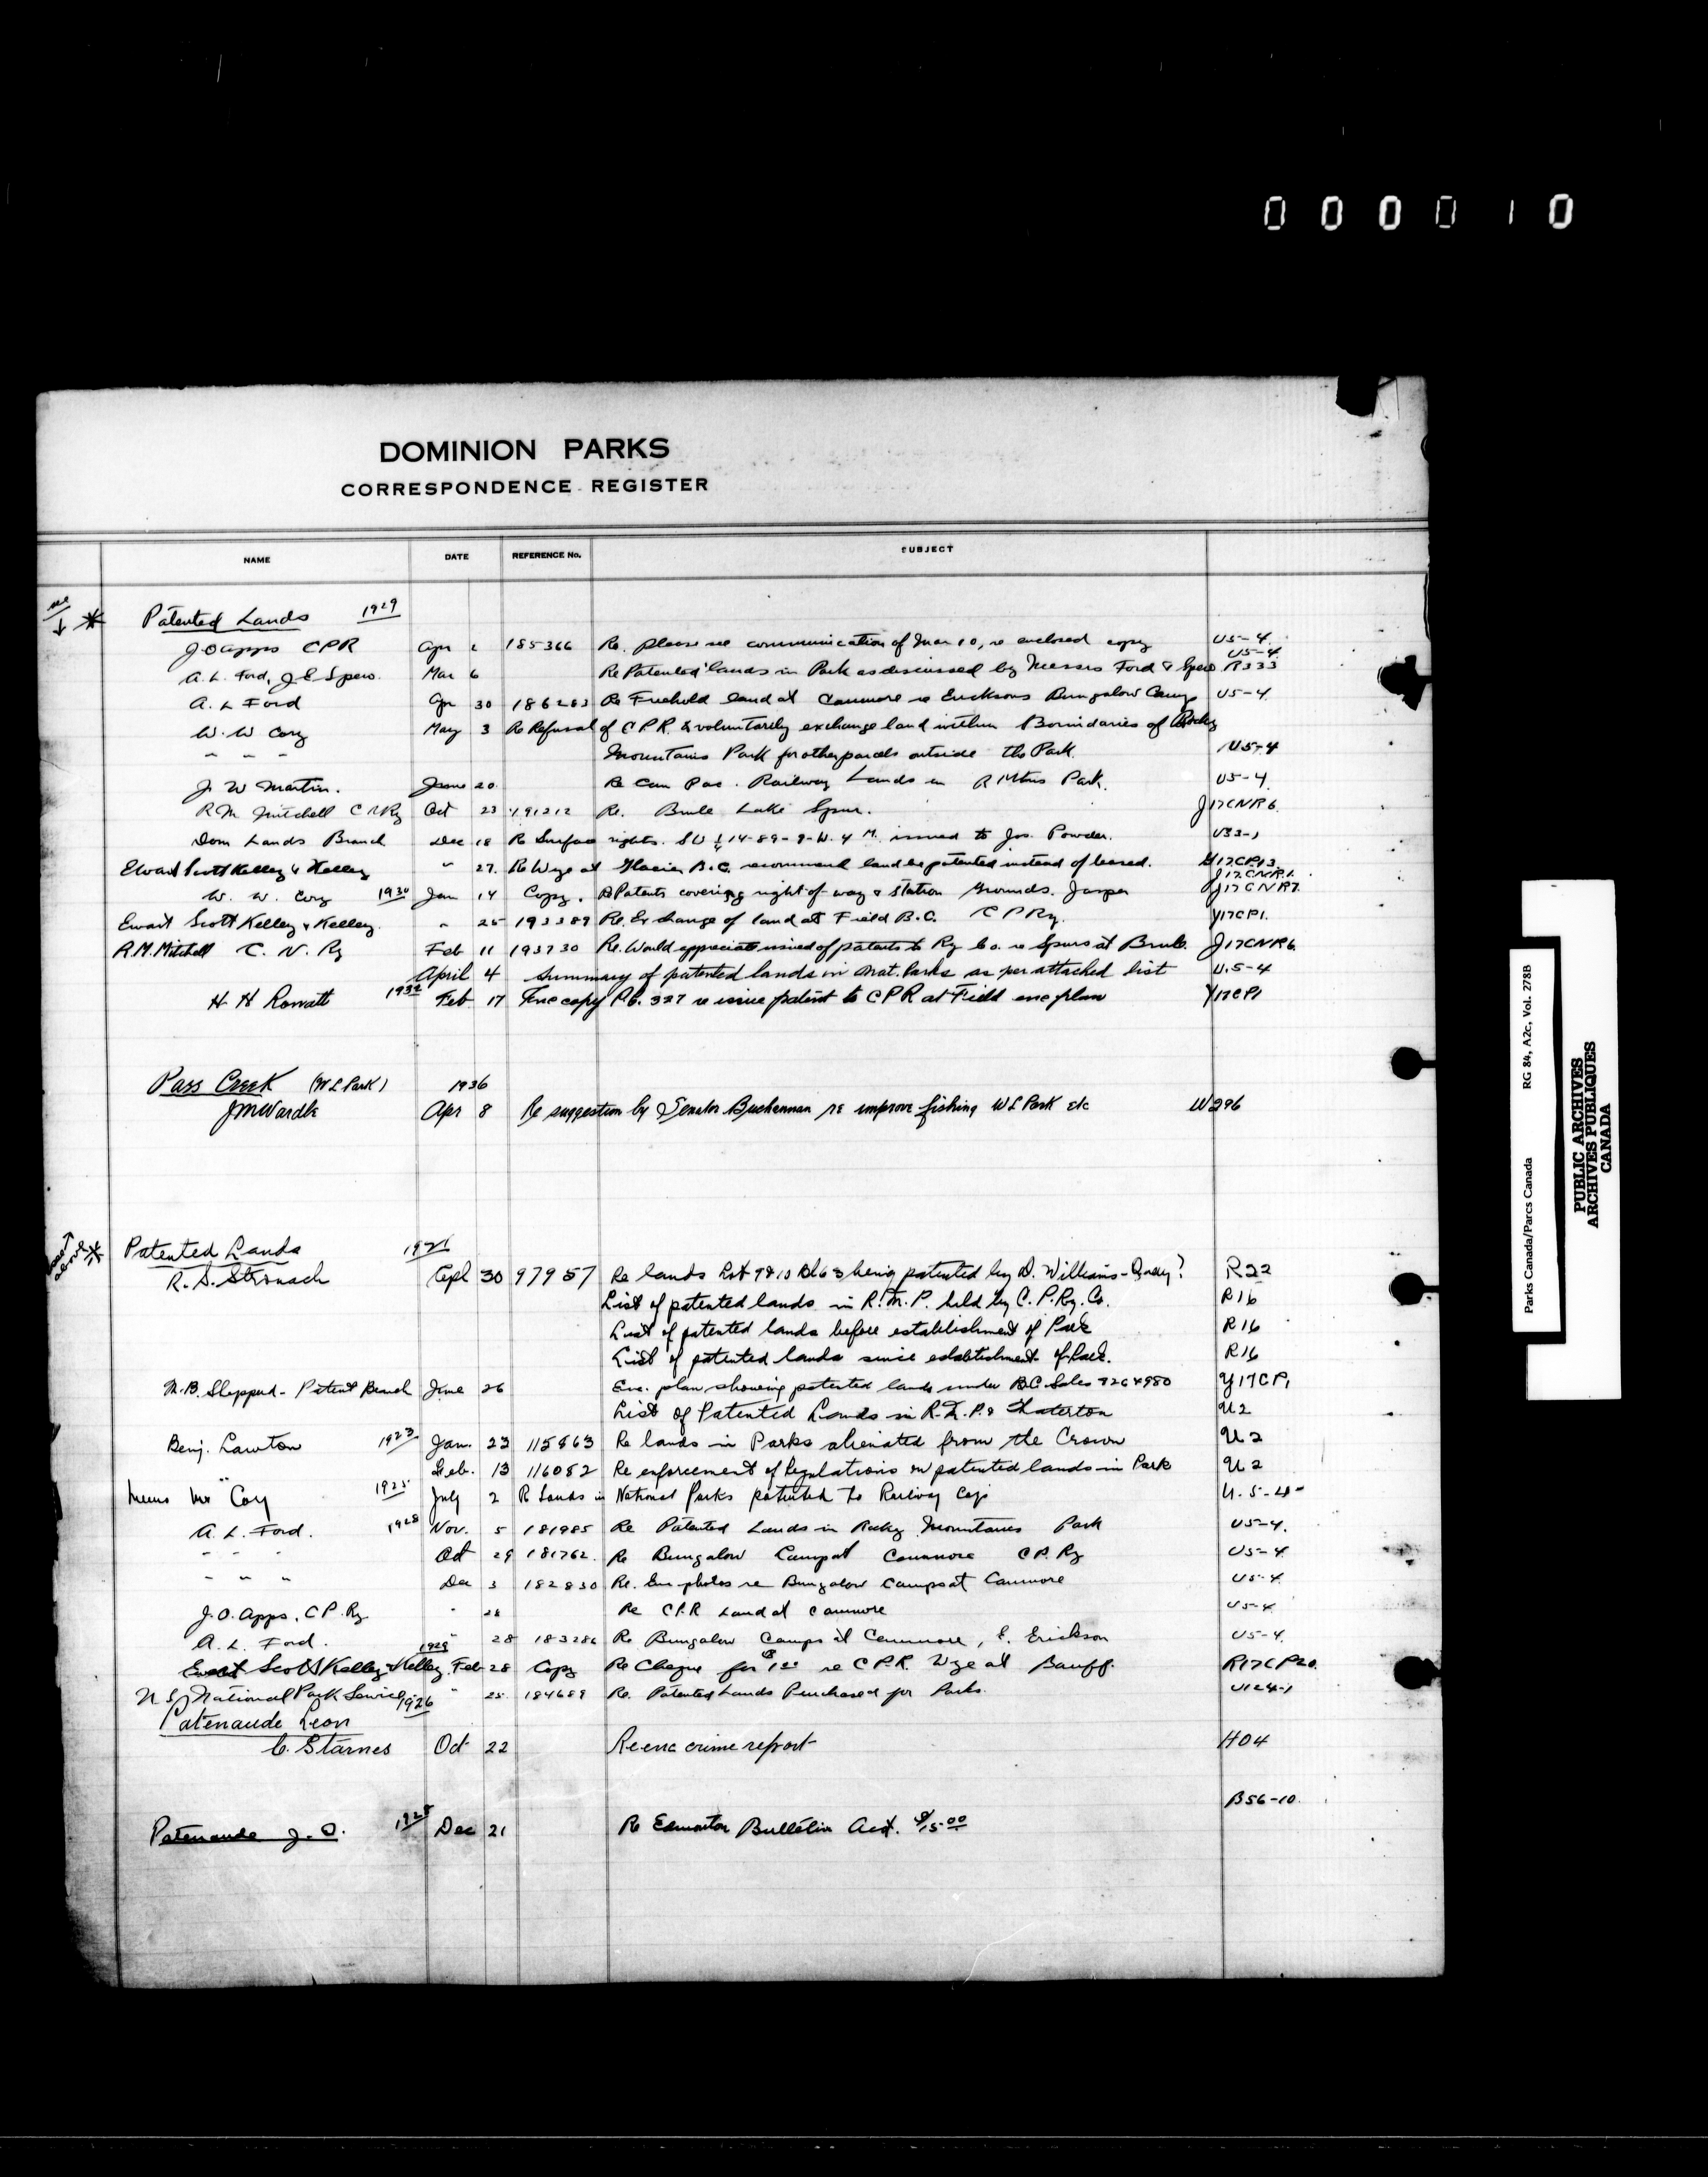 0 0 0 0 1 0
DOMINION PARKS
CORRESPONDENCE REGISTER
NAME DATE REFERENCE No. SUBJECT
see Patented Lands 1929
J O Apps CPR Apr 185366 Re. please see communication of Mar 10, re enclosed copy U5-4
U5-4
A. L. Ford, J E Spero. Mar 6 Re Patented lands in Park as discussed by Messrs Ford & Spero R333
A. L Ford Apr 30 186283 Re Freehold land at Canmore re Ericksons Bungalow Camp U5-4
W. W Cory May 3 Re Refusal of C.P.R. to voluntarily exchange land within Boundaries of Rocky
" " " Mountains Park for other parcels outside the Park. U5-4
J. W Martin. June 20 Re Can Pac. Railway Lands in R Mtns Park. U5-4.
R M Mitchell C N Ry Oct 23 191212 Re. Brule Lake Spur. J17CNR6.
Dom Lands Branch Dec 18 Re Surface rights. SW ¼ 14-89-9-W. 4 M. issued to Jos. Powder. U32-1
Ewart Scott Kelley & Kelley " 27. Re Wye at Glacier B.C. recommend land be patented instead of leased. G17CP13
J17CNR1.
W. W. Cory 1930 Jan 14 Copy. Re Patents covering right of way & station grounds. Jasper J17CNR7.
Ewart Scott Kelley & Kelley. " 25 193389 Re. Exchange of land at Field B.C. C P Ry. Y17CP1.
R.M. Mitchell C. N. Ry Feb 11 193730 Re. Would appreciate issued of patents to Ry Co. re Spurs at Brule. J17CNR6.
April 4 Summary of patented lands in Nat. Parks as per attached list U.5-4
H H Rowatt 1932 Feb. 17 Enc copy P.C. 327 re issue patent to C P R at Field enc plan Y17CP1
Pass Creek (W L Park) 1936
J M Wardle Apr 8 Re suggestion by Senator Buchannan re improve fishing W L Park etc W296
Patented Lands 1921
R. S. Stronach Apl 30 97957 Re lands Lot 9 & 10 Bl 63 being patented by D. Williams - Query? R22
List of patented lands in R. M. P. held by C. P. Ry. Co. R16
List of patented lands before establishment of Park R16
List of patented lands since establishment of Park. R16
M. B. Sheppard - Patent Branch June 26 Enc. plan showing patented lands under B.C. Sales 926 & 980 Y17CP1
List of Patented Lands in R. L. P. & Waterton U2
Benj. Lawton 1923 Jan. 23 115863 Re lands in Parks alienated from the Crown U2
" Feb. 13 116082 Re enforcement of Regulations on patented lands in Park U2
Memo Mr Cory 1925 July 2 Re Lands in National Parks patented to Railway Coys U.5-4
A. L. Ford. 1928 Nov. 5 181985 Re Patented Lands in Rocky Mountains Park U5-4.
" " " Oct 29 181762. Re Bungalow Camp at Canmore C P. Ry U5-4
" " " Dec 3 182830 Re. Enc photos re Bungalow Camps at Canmore U5-4
J. O. Apps, C P. Ry " 28 Re C.P.R Land at Canmore U5-4
A. L. Ford. " 28 183286 Re Bungalow Camps at Canmore, E. Erickson U5-4.
Ewart Scott Kelley & Kelley 1929 Feb 28 Copy Re Cheque for $1.00 re C P.R. Wye at Banff. R17CP20.
U S National Park Service " 25. 184689 Re. Patented Lands Purchased for Parks. U124-1
Patenaude Leon 1926
C. Starnes Oct 22 Re enc crime report H04
B56-10.
Patenaude J. O. 1928 Dec 21 Re Edmonton Bulletin Acct. $15.00
Parks Canada/Parcs Canada RG 84, A2c, Vol. 278B
PUBLIC ARCHIVES
ARCHIVES PUBLIQUES
CANADA